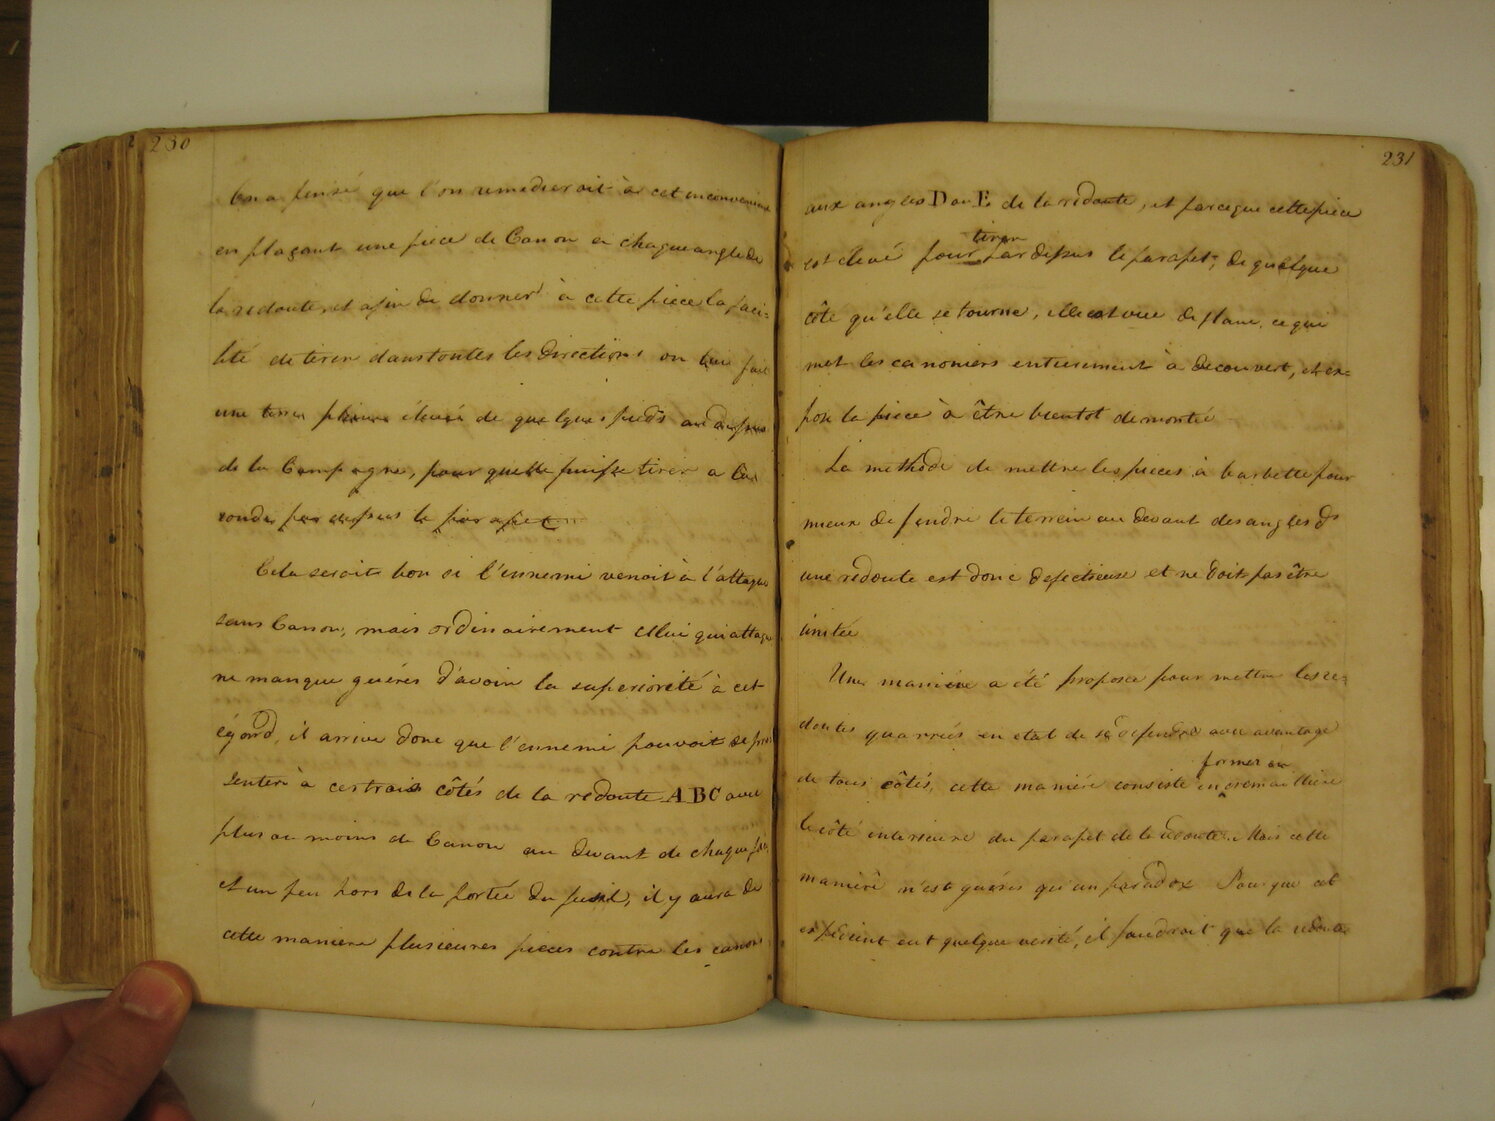 230
On a pensé que l'on remedieroit à cet inconvenient
en plaçant une piece de Canon a chaque angle de
la redoute, et afin de donner à cette piece la faci=
lité de tirer dans toutes les directions on lui fait
une terre pleine élevée de quelques pieds au dessus
de la Campagne, pour quelle puisse tirer a la
ronde par dessus le parapet
Cela seroit bon si l'ennemi venoit à l'attaque
sans Canon, mais ordinairement celui qui attaque
ne manque guéres d'avoir la superiorité à cet
égard, il arrive donc que l'ennemi pouvoit se pré
senter à certrais côtés de la redoute ABC avec
plus ou moins de Canon au devant de chaque
et un peu hors de la portée du fusil, il y aura de
cette maniere plusieures pieces contre les canons
231
aux angles D ou E de la redoute, et parceque cette piece
tirer
est élevé pour par dessus le parapet, de quelque
côte qu'elle se tourne, elle est vue de flanc, ce qui
met les canoniers entierement à decouvert, et ex=
pose la piece à être bientot demontée
La méthode de mettre les pieces à barbette pour
mieux defendre le terrein au devant des angles ds
une redoute est donc defectieuse et ne doit pas être
imitée
Une maniére a été proposée pour mettre les re=
doutes quarrées en etat de se defendre avec avantage
former en
de tous côtés, cette maniére consiste en cremaillere
le côté interieure du parapet de la redoute. Mais cette
maniérê n'est guéres qu'un paradox Pour que cet
expédient eut quelque verité, il faudroit que la redoute